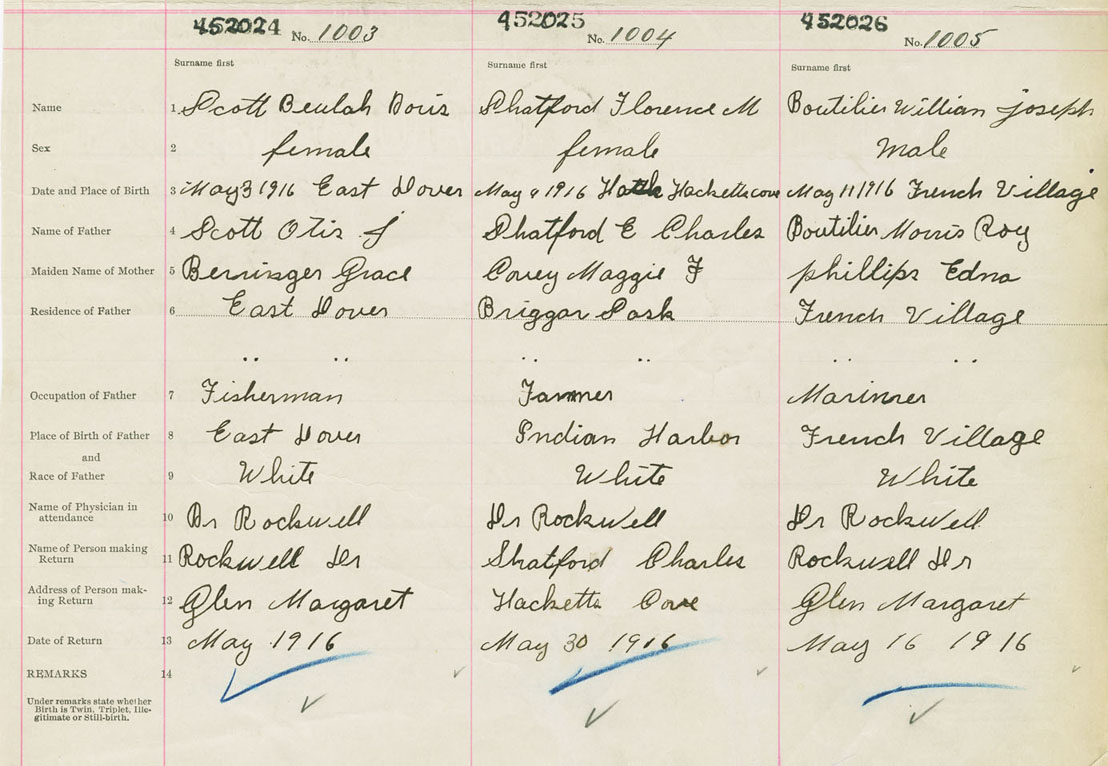 452024 No. 1003 452025 No. 1004 452026 No. 1005
Surname first Surname first Surname first
Name 1 Scott Beulah Doris Shatford Florence M Boutilier William Joseph
Sex 2 female female Male
Date and Place of Birth 3 May 3 1916 East Dover May 9 1916 Hacketts cove May 11 1916 French Village
Name of Father 4 Scott Otis J Shatford E Charles Boutilier Morris Roy
Maiden Name of Mother 5 Berringer Grace Covey Maggie F phillips Edna
Residence of Father 6 East Dover Briggar French Village
" " " " " "
Occupation of Father 7 Fisherman Farmer Marinner
Place of Birth of Father 8 East Dover Indian Harbor French Village
and
Race of Father 9 White White White
Name of Physician in
attendance 10 Dr Rockwell Dr Rockwell Dr Rockwell
Name of Person making
Return 11 Rockwell Dr Shatford Charles Rockwell Dr
Address of Person mak-
ing Return 12 Glen Margaret Hacketts Cove Glen Margaret
Date of Return 13 May 1916 May 30 1916 May 16 1916
REMARKS 14
Under remarks state whether
Birth is Twin, Triplet, Ille-
gitimate or Still-birth.